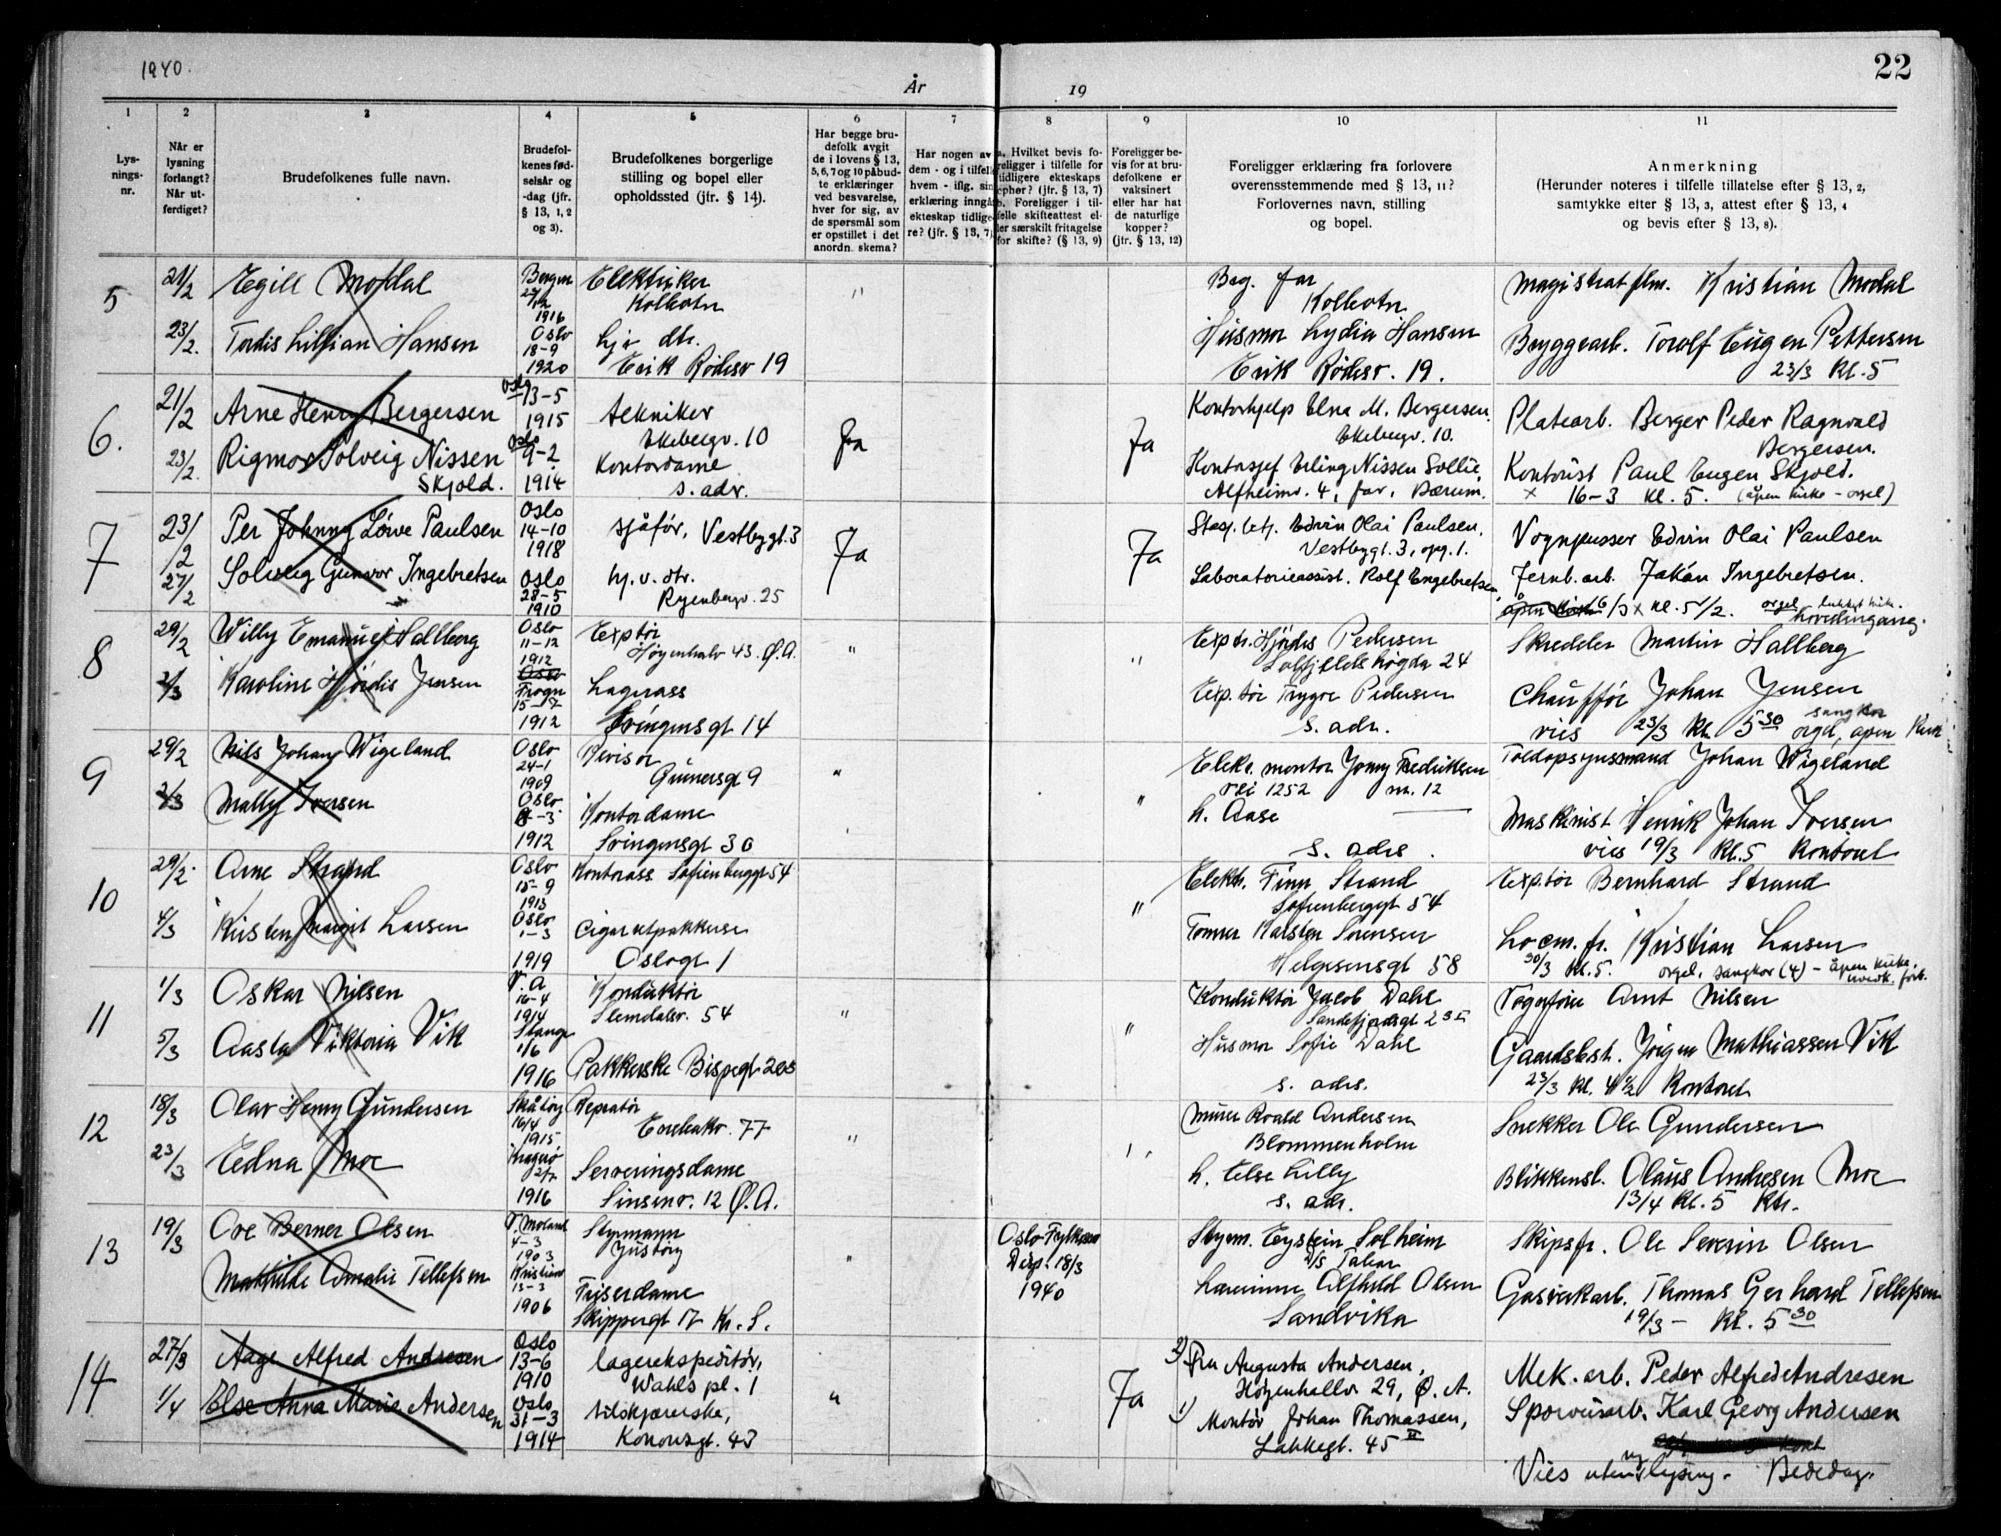 1940.
År
19
22
1
2
3
4
5
6
7
8
9
10
11
Lys-
nings-
nr.
Når er
lysning
forlangt?
Når ut-
ferdiget?
Brudefolkenes fulle navn.
Brudefol-
kenes fød-
selsår og
-dag (jfr.
§ 13, 1, 2
og 3).
Brudefolkenes borgerlige
stilling og bopel eller
opholdssted (jfr. § 14).
Har begge bru-
defolk avgit
de i lovens § 13,
5, 6, 7 og 10 påbud-
te erklæringer
ved besvarelse,
hver for sig, av
de spørsmål som
er opstillet i det
anordn. skema?
Har nogen av
dem - og i tilfelle
hvem - iflg. sin
erklæring inngått
ekteskap tidlige-
re? (jfr. § 13, 7)
a. Hvilket bevis fo-
religger i tilfelle for
tidligere ekteskaps
ophør? (jfr. § 13, 7)
b. Foreligger i til-
felle skifteattest el-
ler særskilt fritagelse
for skifte? (§ 13, 9)
Foreligger be-
vis for at bru-
defolkene er
vaksinert
eller har hat
de naturlige
kopper?
(jfr. § 13, 12)
Foreligger erklæring fra forlovere
overensstemmende med § 13, 11?
Forlovernes navn, stilling
og bopel.
Anmerkning
(Herunder noteres i tilfelle tillatelse efter § 13, 2,
samtykke efter § 13, 3, attest efter § 13, 4
og bevis efter § 13, 8).
5
21/2
Egill Modal
Bergen
1916
Elektriker
Kolbotn
"
far
Kolbotn
Magistrat flm. Kristian Modal
23/2.
Tordis Lillian Hansen
Oslo
18-9
1920
hjv. dtr.
Erik Rødesv 19
Husmor Lydia Hansen
Erik Rødesv. 19.
Bryggearb. Torolf Eugen Pettersen
23/3 Kl. 5
6.
21/2
Arne Henry Bergersen
Oslo
13-5
1915
tekniker
Ekebergv. 10
Ja
Ja
Kontorhjelp Elna M. Bergersen.
Ekebergv. 10.
Platearb. Berger Peder Ragnvald
Bergersen.
23/2.
Rigmor Solveig Nissen
Skjold.
Oslo
9-2
1914
Kontordame
s. adr.
Kontorsjef Erling Nissen Sollie
Alfheimv. 4, far, Bærum.
Kontorist Paul Eugen Skjold.
x 16-3 kl. 5. (åpen kirke - orgel)
7
23/2
Per Johnny Løwe Paulsen
Oslo
14-10
1918
sjåfør, Vestbygt. 3
Ja
Ja
Stasj. betj. Edvin Olai Paulsen,
Vestbygt. 3, opg. 1.
Vognpusser Edvin Olai Paulsen
27/2
Solveig Gunvor Ingebretsen
Oslo
28-5
1910
hj. v. dtr.
Ryenbergv. 25
Laboratorieassist. Rolf Engebretsen,
Jernb. arb. Jakob Ingebretsen.
16/3 x kl. 5 1/2. orgel
hovedinngang.
8
29/2
Willy Emanuel Hallberg
Oslo
11-12
1912
Exptør
Høyenhalv 43. Ø. A.
"
"
Exptr. Hjørdis Pedersen
Solfjellshøgda 24
Skredder Martin Hallberg
2/3
Karoline Hjørdis Jensen
Oslo
Frogn
1912
Lagerass
Sveingensgt 14
Exp. tør Trygve Pedersen
s. adr.
Chaufför Johan Jensen
vies 23/3 Kl. 5 30 orgel, sangkor åpen Kirk
9
29/2
Nils Johan Wigeland
Oslo
24-1
1909
Revisor
Gunnersgt 9
"
"
Elekr. montør Jonny Fredriksen
vei 1252 nr. 12
Toldopsynsmand Johan Wigeland
2/3
Mally Iversen
Oslo
8-3
1912
Kontordame
Sveingensgt 30
h. Aase
s. adrs.
Maskinist Henrik Johan Iversen
vies 19/3 Kl. 5 Kontoret
10
29/2.
Arne Strand
Oslo
15-9
1913
Kontorass Sofienberggt 54
"
Elektr. Finn Strand
Sofienberggt 54
Exp.tør Bernhard Strand
4/3
Kirsten Margit Larsen
Oslo
1-3
1919
Cigaretpakkerske
Oslogt 1
Tomrer Karsten Sørensen
Helgesensgt 58
Locm. fr. Kristian Larsen
30/3 kl. 5. orgel, sangkor (4) - åpen kirke.
11
1/3
Oskar Nilsen
V. A
16-4
1914
Konduktør
Slemdalsv. 54
"
"
Konduktør Jacob Dahl
Sandefjordsgt 2
Vognfører Arnt Nilsen
5/3
Aasta Viktoria Vik
Stange
1/6
1916
Pakkerske Bispegt
Husmor Sofie Dahl
s. adrs.
Gaardsbest. Jörgen Mathiassen Vik
23/3 Kl. 4 1/2 Kontoret
12
18/3
Olav Henry Gundersen
Skåtøy
16/4
1915
Repratør
Enebakv. 77
"
"
Murer Roald Andersen
Blommenholm
Snekker Ole Gundersen
23/3
Edna Moe
Kragerø
1916
Serveringsdame
Sinsenv. 12 Ø. A.
h. Else Lilly
s. adr.
Blikkensl. Olaus Andresen Moe
13/4 Kl. 5 Ktr.
13
19/3
Ove Berner Olsen
V. Moland
4-3
1903
Styrmann
Justøy
"
Oslo Fylkesm
Disp. 18/3
1940
Styrm. Eystein Solheim
D/S
Skipsfr. Ole Severin Olsen
Mathilde Amalie Tellefsen
Kristians
13-3
1906
Friserdame
Skippergt 17 Kr. S.
Lærerinne Alfhild Olsen
Sandvika
Gasverkarb. Thomas Gerhard Tellefsen
19/3 - Kl. 5 30
14
27/3
Aage Alfred Andresen
Oslo
13-6
1910
lagerekspeditør,
Wahls pl. 1
"
Ja
2) Fru Augusta Andersen,
Høyenhallv 29, Ø. A.
Mek. arb. Peder Alfred Andresen
1/4
Else Anna Marie Andersen
Oslo
31-3
1914
tilskjærerske,
Konowsgt. 43
1) Montør Johan Thomassen,
Lakkegt. 45 II
Sporveisarb. Karl Georg Andersen
Vies uten ny lysing. Bededag.